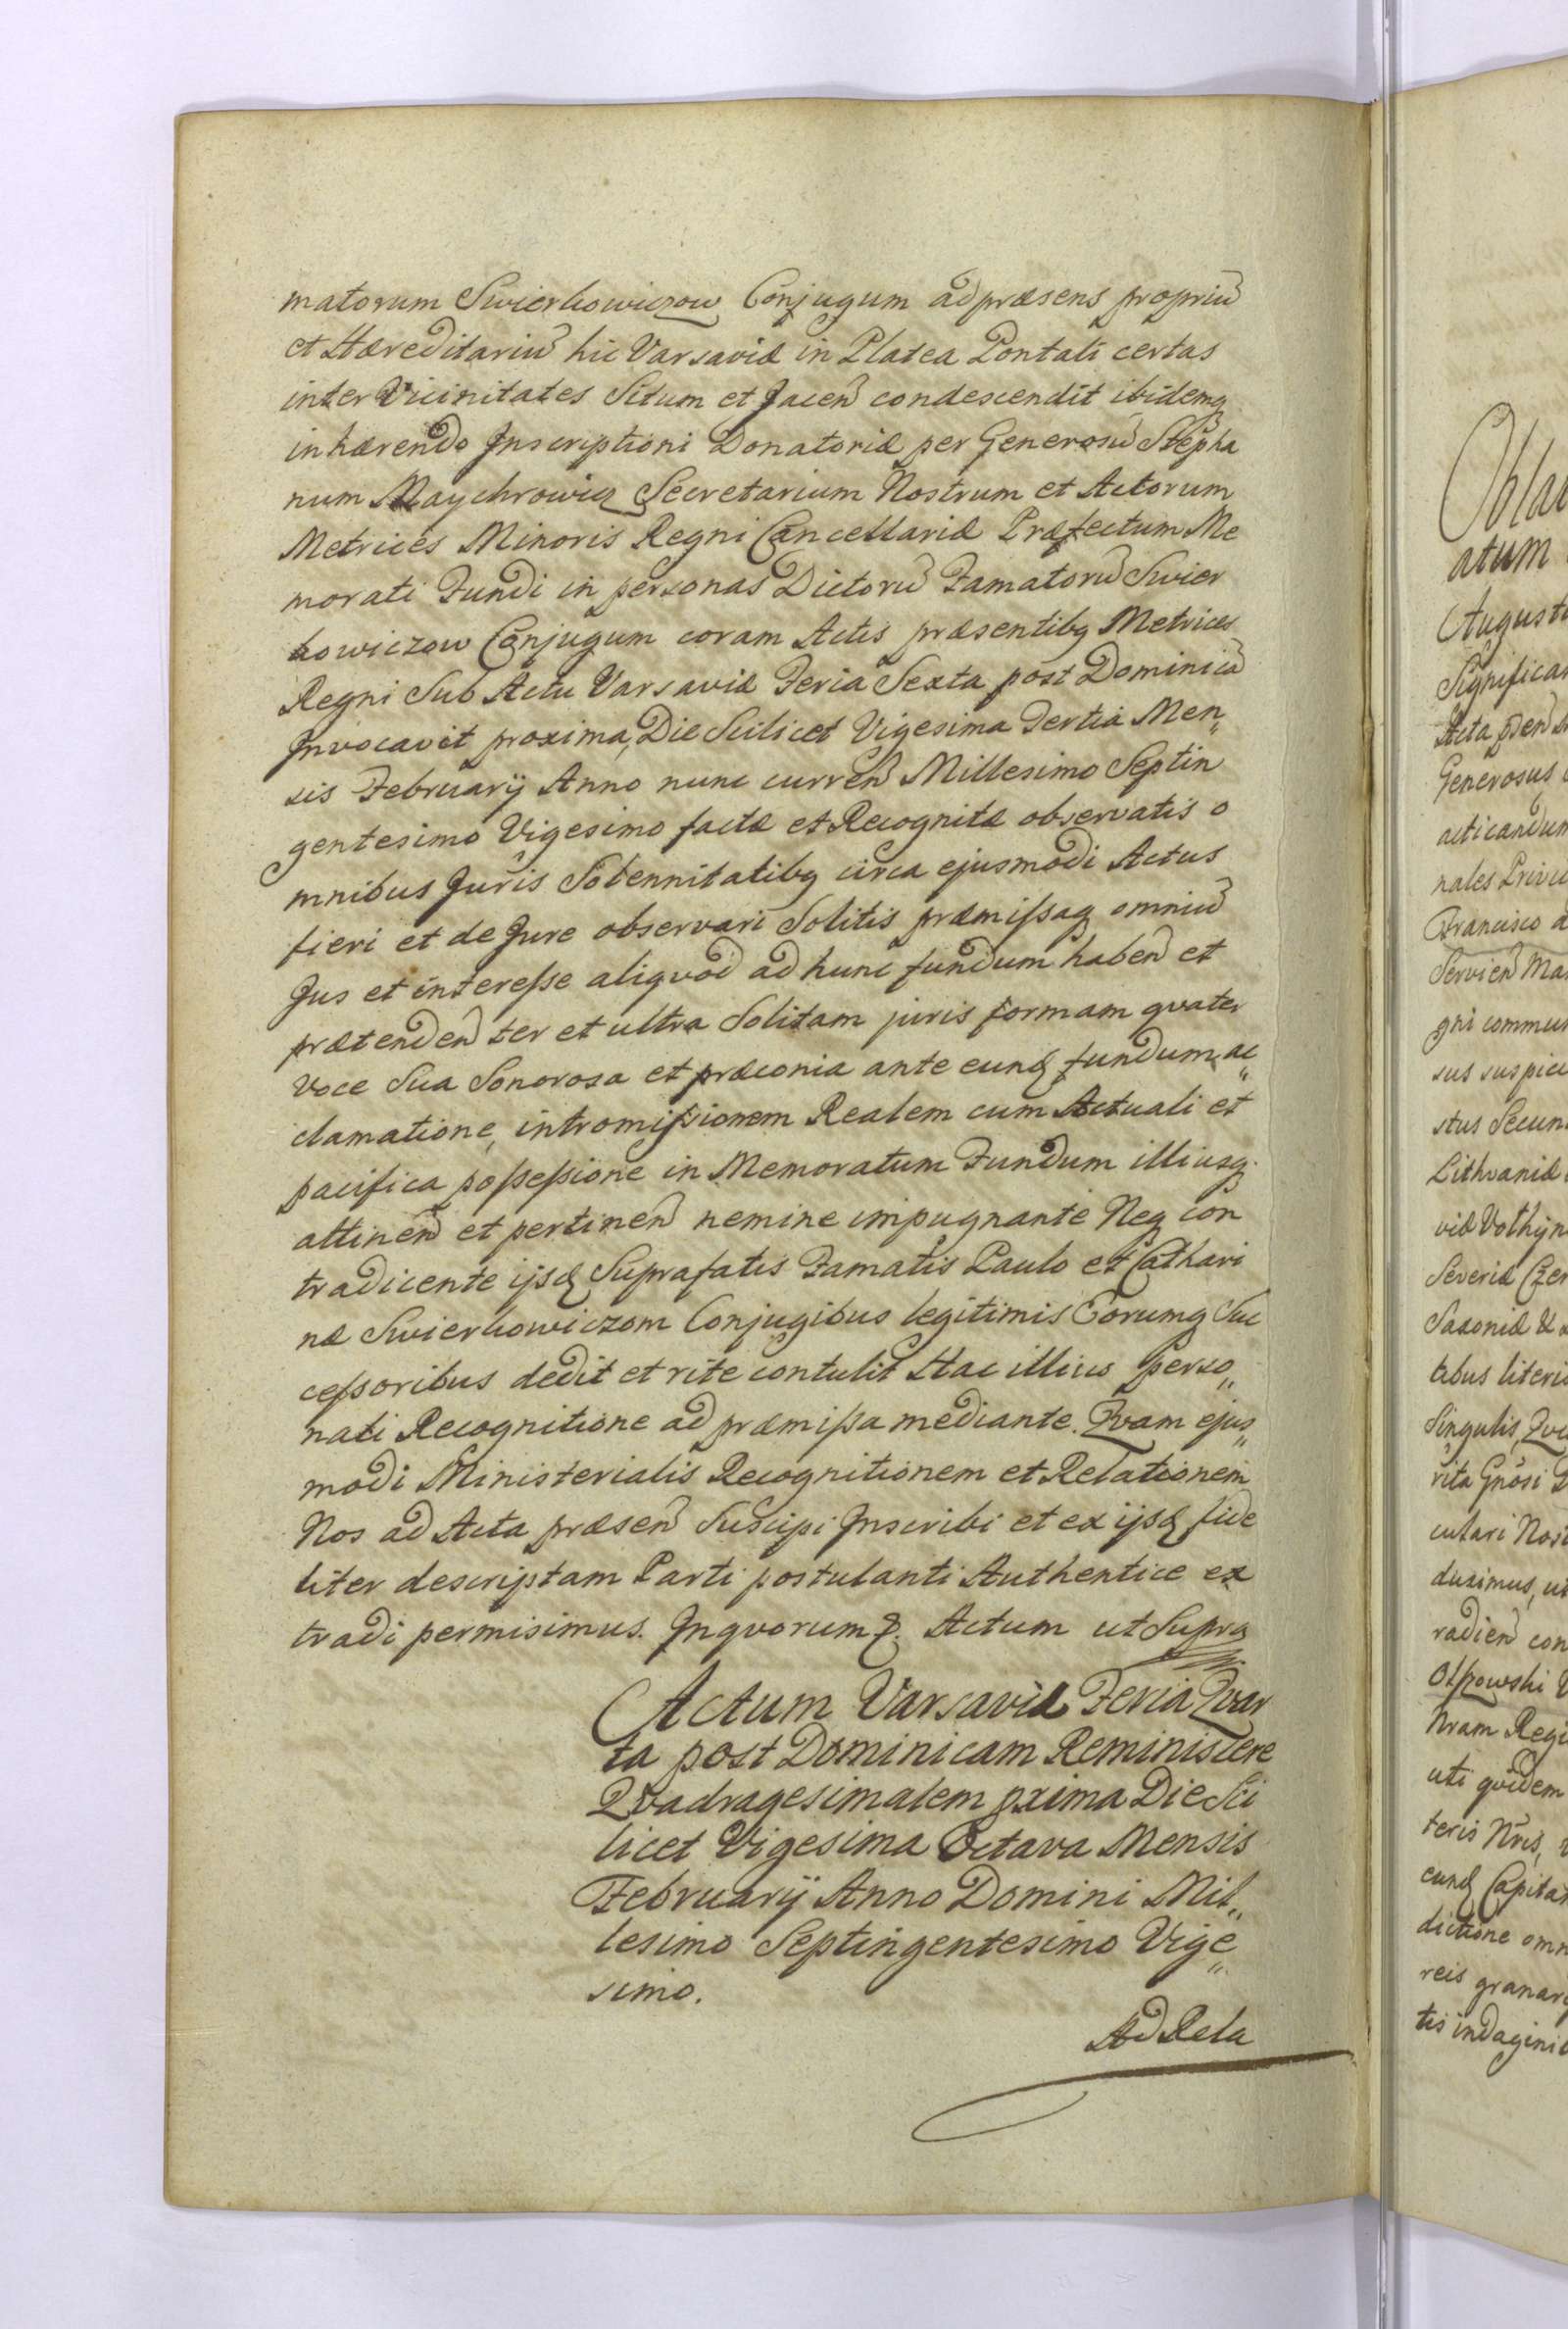 matorum Swierkowiczow Conjugum ad præsens propriũ
et Hæreditariũ hic Varsaviæ in Platea Pontali certas
inter Vicinitates Situm et Jaceñ condescendit ibidemq
inhærendo Inscriptioni Donatoriæ per Generosũ Stepha
num Maychrowicz Secretarium Nostrum et Actorum
Metrices Minoris Regni Cancellariæ Præfectum Me
morati Fundi in personas Dictorũ Famatorũ Swier
kowiczow Conjugum coram Actis præsentibq Metrices
Regni Sub Actu Varsaviæ Feria Sexta post Dominicã
Invocavit proxima, Die Scilicet Vigesima Tertia Men„
sis Februarij Anno nunc curreñ Millesimo Septin
gentesimo Vigesimo factæ et Recognitæ observatis o
mnibus Juris Solennitatibq circa ejusmodi Actus
fieri et de Jure observari Solitis præmissaq omniũ
Jus et interesse aliqvod ad hunc fundum habeñ et
prætendeñ ter et ultra Solitam juris formam qvater
voce Sua Sonorosa et præconia ante eund fundum ac„
clamatione, intromissionem Realem cum Actuali et
pacifica possessione in Memoratum Fundum illiusq
attineñ et pertineñ nemine impugnante Neq con
tradicente ijsd Suprafatis Famatis Paulo et Cathari
næ Swierkowiczom Conjugibus legitimis Eorumq Suc
cessoribus dedit et rite contulit Hac illius perso„
nati Recognitione ad præmissa mediante. Qvam ejus„
modi Ministerialis Recognitionem et Relationem
Nos ad Acta præseñ Suscipi Inscribi et ex ijsd fide
liter descriptam Parti postulanti Authentice ex
tradi permisimus. Inqvorum &. Actum ut Supra
Actum Varsaviæ Feria Qvar
ta post Dominicam Reminiscere
Qvadragesimalem pxima Die Sci
licet Vigesima Octava Mensis
Februarij Anno Domini Mil„
lesimo Septingentesimo Vige„
simo.
Ad Rela
atum
Significa
Generosus
nales Privi
Francisco a
Servieñ Ma
gni commu
sus suspic
stus Secun
Lithvaniæ
viæ Volhyn
Severiæ Czer
Saxoniæ &
Singulis, Qvi
culari Nos
duximus, ut
radieñ con
Olszowski
Nram Regi
uti qvidem
teris Nris,
eund Capita
dictione omn
reis granar
tis indagini